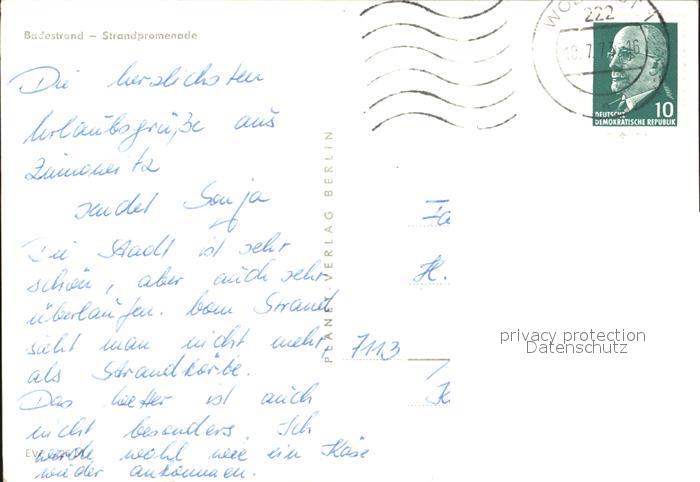 Badestrand – Strandpromenade
WOLGAST 1
222
10.7.7 -16
10
DEUTSCHE
DEMOKRATISCHE REPUBLIK
Die herzlichsten
Urlaubsgrüße aus
Zinnowitz
sendet Sonja
Die Stadt ist sehr
schön, aber auch sehr
überlaufen. Vom Strand
sieht man nicht mehr,
als Strandkörbe.
Das Wetter ist auch
nicht besonders. Ich
werde wohl wie ein Käse
wieder ankommen.
PLANET-VERLAG BERLIN
Fa
H.
7113
privacy protection
Datenschutz